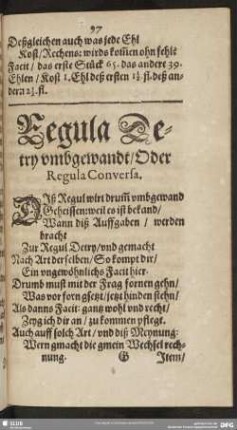 97
Deßgleichen auch was jede Ehl
Kost/Rechens: wirds kom̃en ohn fehlt
Facit/ das erste Stück 65. das andere 39.
Ehlen/Kost 1. Ehl deß ersten 1¾ fl. deß an-
dern 2¼. fl.
Regula De-
try vmbgewandt/Oder
Regula Conversa.
DIß Regul wirt drum̃ vmbgewand
Geheissen: weil es ist bekand/
Wann diß Auffgaben / werden
bracht
Zur Regul Detry/vnd gemacht
Nach Art derselben/So kompt dir/
Ein vngewöhnlichs Facit hier.
Drumb must mit der Frag fornen gehn/
Was vor forn gsetzt/jetzt hinden stehn/
Als danns Facit: gantz wohl vnd recht/
Zeyg ich dir an/ zu kommen pflegt.
Auch auff solch Art/vnd diß Meynung:
Wern gmacht die gmein Wechsel rech-
nung. G Item/
SLUB
DFG